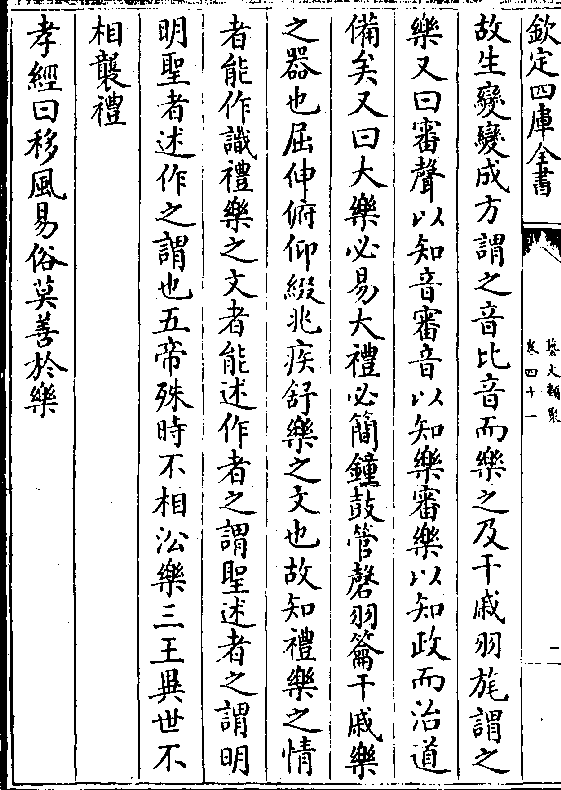 欽定四庫全書
藝文類聚
卷四十一
二
故生變變成方謂之音比音而樂之及干戚羽旄謂之
樂又曰審聲以知音審音以知樂審樂以知政而治道
備矣又曰大樂必易大禮必簡鐘鼓管磬羽籥干戚樂
之器也屈伸俯仰綴兆疾舒樂之文也故知禮樂之情
者能作識禮樂之文者能述作者之謂聖述者之謂明
明聖者述作之謂也五帝殊時不相㳂樂三王異世不
相襲禮
孝經曰移風易俗莫善於樂